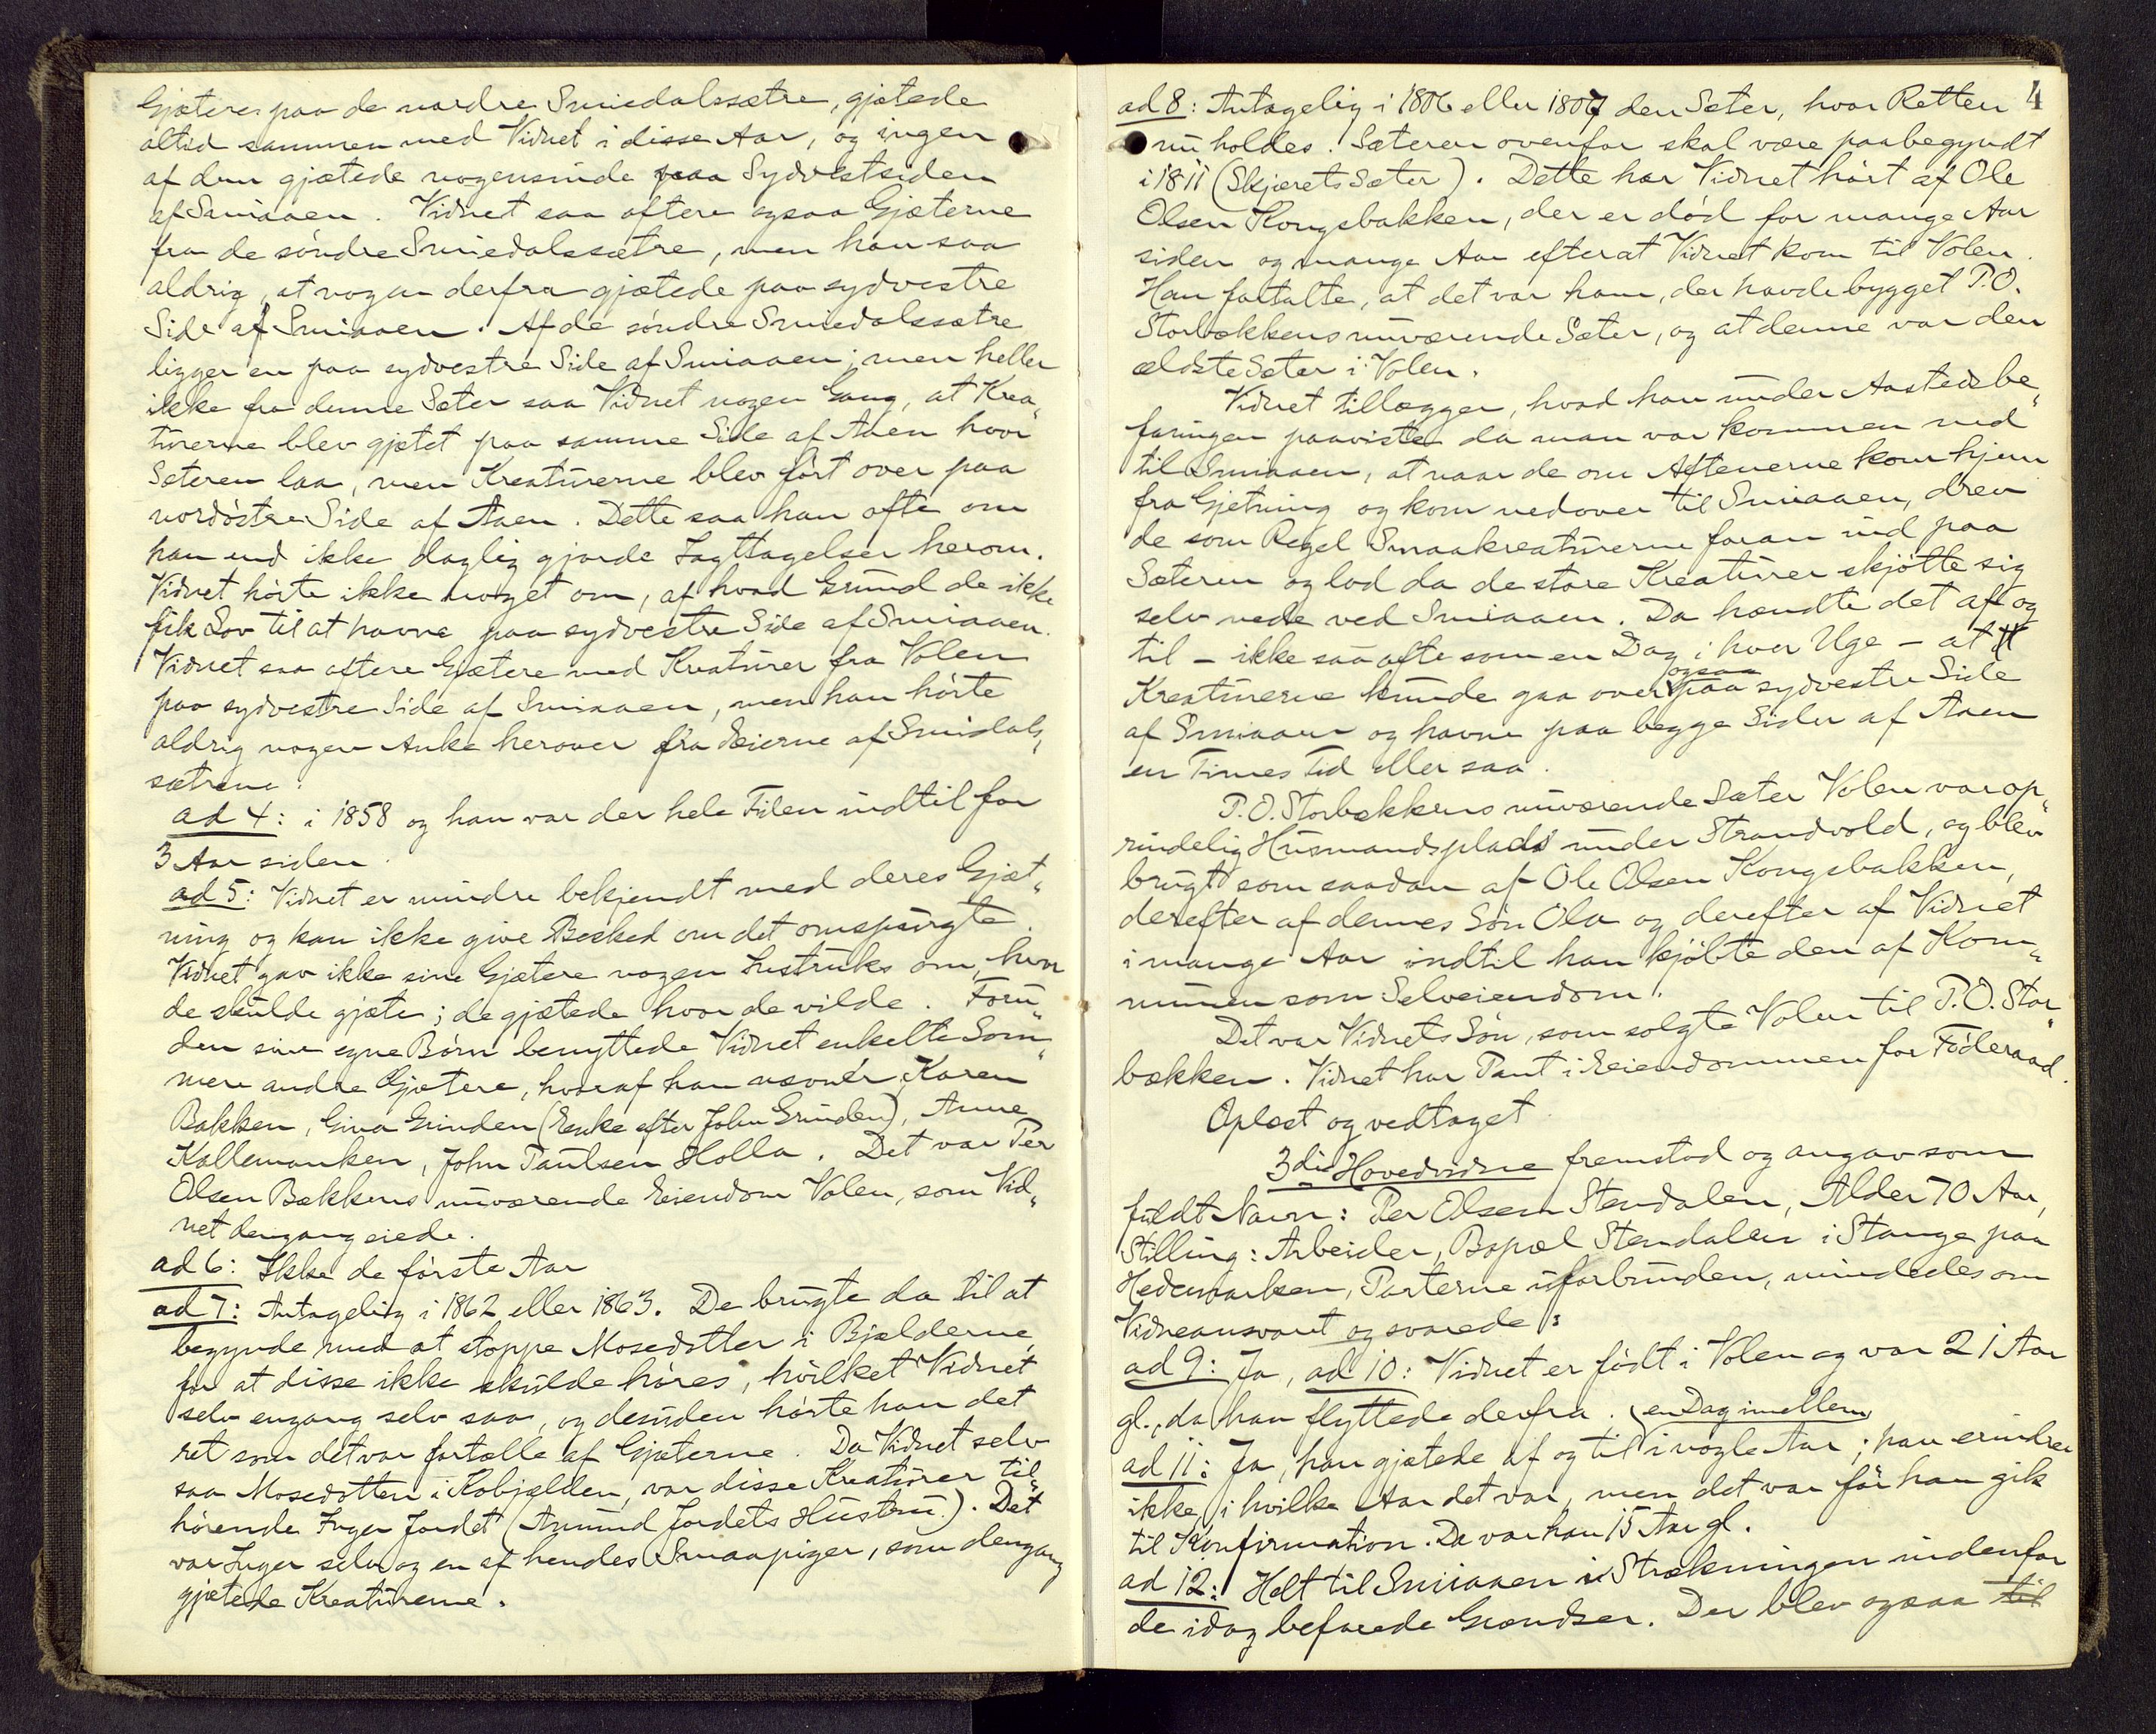 Gjætere paa de nordre Smiedalssætre, gjætede
altid sammen med Vidnet i disse Aar, og ingen
af dem gjætede nogensinde paa Sydvestsiden
af Smiaaen. Vidnet saa oftere ogsaa Gjæterne
fra de söndre Smiedalssætre, men han saa
aldrig, at nogen derfra gjætede paa sydvestre
Side af Smiaaen. Af de söndre Smiedalssætre
ligger en paa sydvestre Side af Smiaaen; men heller
ikke fra denne Sæter saa Vidnet nogen Gang, at Krea„
turerne blev gjætet paa samme Side af Aaen hvor
Sæteren laa, men Kreaturerne blev fört over paa
nordöstre Side af Aaen. Dette saa han ofte om
han end ikke daglig gjorde Iagttagelser herom.
Vidnet hörte ikke noget om, af hvad Grund de ikke
fik Lov til at havne paa sydvestre Side af Smiaaen.
Vidnet saa oftere Gjætere med Kreaturer fra Volen
paa sydvestre Side af Smiaaen, men han hörte
aldrig nogen Anke herover fra Eierne af Smidals„
sætrene.
ad 4: i 1858 og han var der hele Tiden indtil for
3 Aar siden.
ad 5: Vidnet er mindre bekjendt med deres Gjæt„
ning og kan ikke give Besked om det omspurgte.
Vidnet gav ikke sine Gjætere nogen Instruks om, hvor
de skulde gjæte; de gjætede hvor de vilde. Foru„
den sine egne Börn benyttede Vidnet enkelte Som„
mere andre Gjætere, hvoraf han nævner, Karen
Bakken, Gina Grinden (Enke efter John Grinden), Anne
Kallemanken, John Paulsen Holla. Det var Per
Olsen Bækkens nuværende Eiendom Volen, som Vid„
net dengang eiede.
ad 6: Ikke de förste Aar
ad 7: Antagelig i 1862 eller 1863. De brugte da til at
begynde med at stoppe Mosedotter i Bjælderne,
for at disse ikke skulde höres, hvilket Vidnet
selv engang selv saa, og desuden hörte han det
ret som det var fortælle af Gjæterne. Da Vidnet selv
saa Mosedotten i Kobjælden, var disse Kreaturer til„
hörende Inger Jordet (Amund Jordets Hustru). Det
var Inger selv og en af hendes Smaapiger, som dengang
gjætede Kreaturerne.
4
ad 8: Antagelig i 1806 eller 1807 den Sæter, hvor Retten
nu holdes. Sæteren ovenfor skal være paabegyndt
i 1811 (Skjærets Sæter). Dette har Vidnet hört af Ole
Olsen Kongsbakken, der er död for mange Aar
siden og mange Aar efterat Vidnet kom til Volen.
Han fortalte, at det var ham, der havde bygget P.O.
Storbækkens nuværende Sæter, og at denne var den
ældste Sæter i Volen.
Vidnet tillægger, hvad han under Aastedsbe„
faringen paaviste da man var kommen ned
til Smiaaen, at naar de om Aftenerne kom hjem
fra Gjetning og kom nedover til Smiaaen, drev
de som Regel Smaakreaturerne foran ind paa
Sæteren og lod da de store Kreaturer skjötte sig
selv nede ved Smiaaen. Da hændte det af og
til – ikke saa ofte som en Dag i hver Uge – at
Kreaturerne kunde gaa over ogsaa paa sydvestre Side
af Smiaaen og havne paa begge Sider af Aaen
en Times Tid eller saa.
P.O. Storbækkens nuværende Sæter Volen var op„
rindelig Husmandsplads under Strandvold, og blev
brugt som saadan af Ole Olsen Kongsbakken,
derefter af dennes Sön Ola og derefter af Vidnet
i mange Aar indtil han kjöbte den af Kom„
munen som Selveiendom.
Det var Vidnets Sön, som solgte Volen til P.O. Stor„
bækken. Vidnet har Pant i Eiendommen for Föderaad.
Oplæst og vedtaget.
3die Hovedvidne fremstod og angav som
fuldt Navn: Per Olsen Stendalen, Alder 70 Aar,
Stilling: Arbeider, Bopæl Stendalen i Stange paa
Hedemarken, Parterne uforbunden, mindedes om
Vidneansvaret og svarede:
ad 9: Ja, ad 10: Vidnet er födt i Volen og var 21 Aar
gl., da han flyttede derfra. (en Dag imellem)
ad 11: Ja, han gjætede af og til i nogle Aar; han erindrer
ikke, i hvilke Aar det var, men det var för han gik
til Konfirmation. Da var han 15 Aar gl.
ad 12: Helt til Smiaaen i Strækningen indenfor
de idag befarede Grændser. Der blev ogsaa til